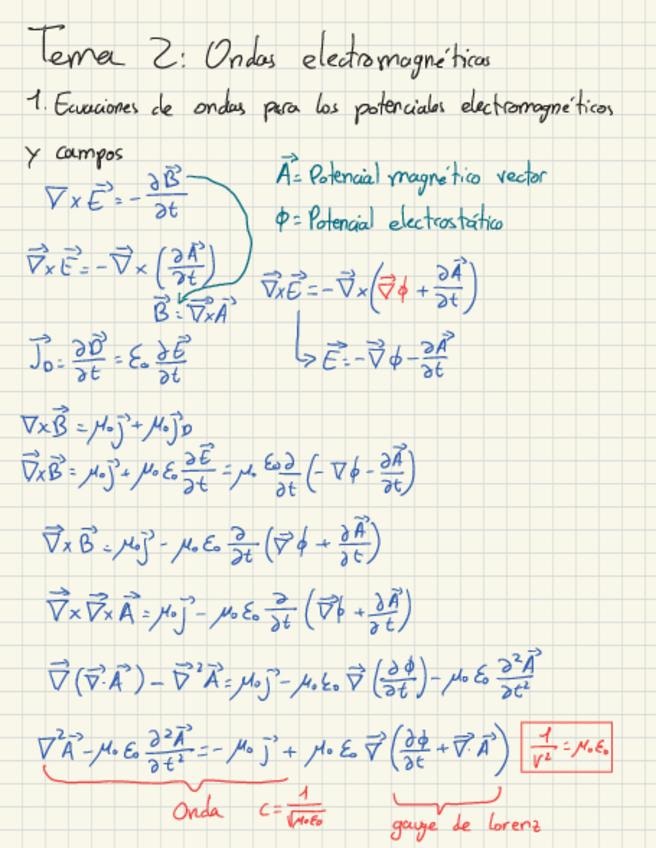 Tema 2: Ondas electromagnéticas
1. Ecuaciones de ondas para los potenciales electromagnéticos
y campos
∇×E⃗ = -∂B⃗/∂t
A⃗ = Potencial magnético vector
ϕ = Potencial electrostático
∇⃗×E⃗ = -∇⃗×(∂A⃗/∂t)
B⃗ = ∇⃗×A⃗
∇⃗×E⃗ = -∇⃗×(∇⃗ϕ + ∂A⃗/∂t)
E⃗ = -∇⃗ϕ - ∂A⃗/∂t
J⃗_D = ∂D⃗/∂t = ε₀ ∂E⃗/∂t
∇×B⃗ = μ₀ j⃗ + μ₀ j⃗_D
∇⃗×B⃗ = μ₀ j⃗ + μ₀ ε₀ ∂E⃗/∂t = μ₀ ε₀∂/∂t (-∇ϕ - ∂A⃗/∂t)
∇⃗×B⃗ = μ₀ j⃗ - μ₀ ε₀ ∂/∂t (∇⃗ϕ + ∂A⃗/∂t)
∇⃗×∇⃗×A⃗ = μ₀ j⃗ - μ₀ ε₀ ∂/∂t (∇⃗ϕ + ∂A⃗/∂t)
∇⃗(∇⃗·A⃗) - ∇⃗²A⃗ = μ₀ j⃗ - μ₀ ε₀ ∇⃗(∂ϕ/∂t) - μ₀ ε₀ ∂²A⃗/∂t²
∇²A⃗ - μ₀ ε₀ ∂²A⃗/∂t² = -μ₀ j⃗ + μ₀ ε₀ ∇⃗(∂ϕ/∂t + ∇⃗·A⃗)
1/v² = μ₀ ε₀
Onda
c = 1/√μ₀ε₀
gauge de Lorenz